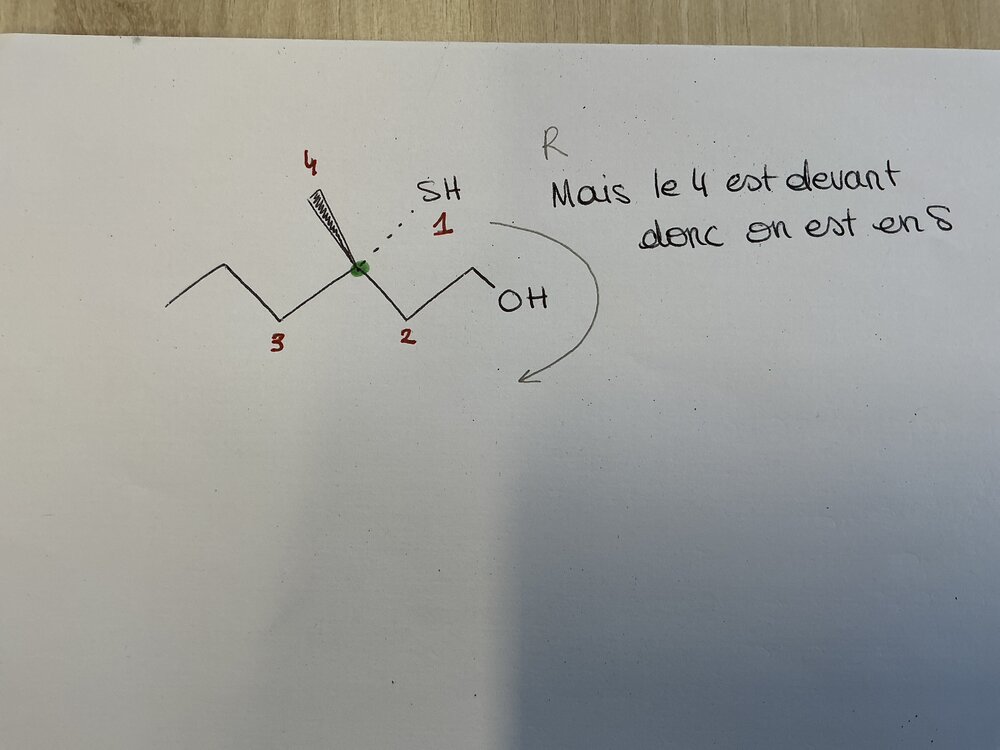 R
4
SH
1
Mais le 4 est devant
donc on est en S
OH
3
2